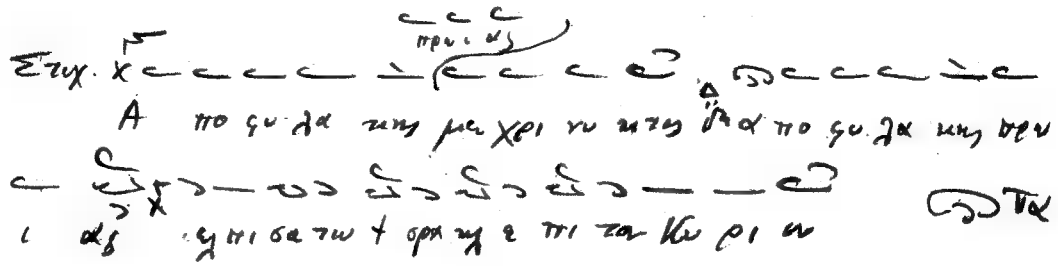 πρω ι ας
Στιχ.
Α πο φυ λα κης με χρι νυ κτος α πο φυ λα κης πρω
Πα
ι ας ελ πι σα τω Ι σρα ηλ ε πι τον Κυ ρι ον